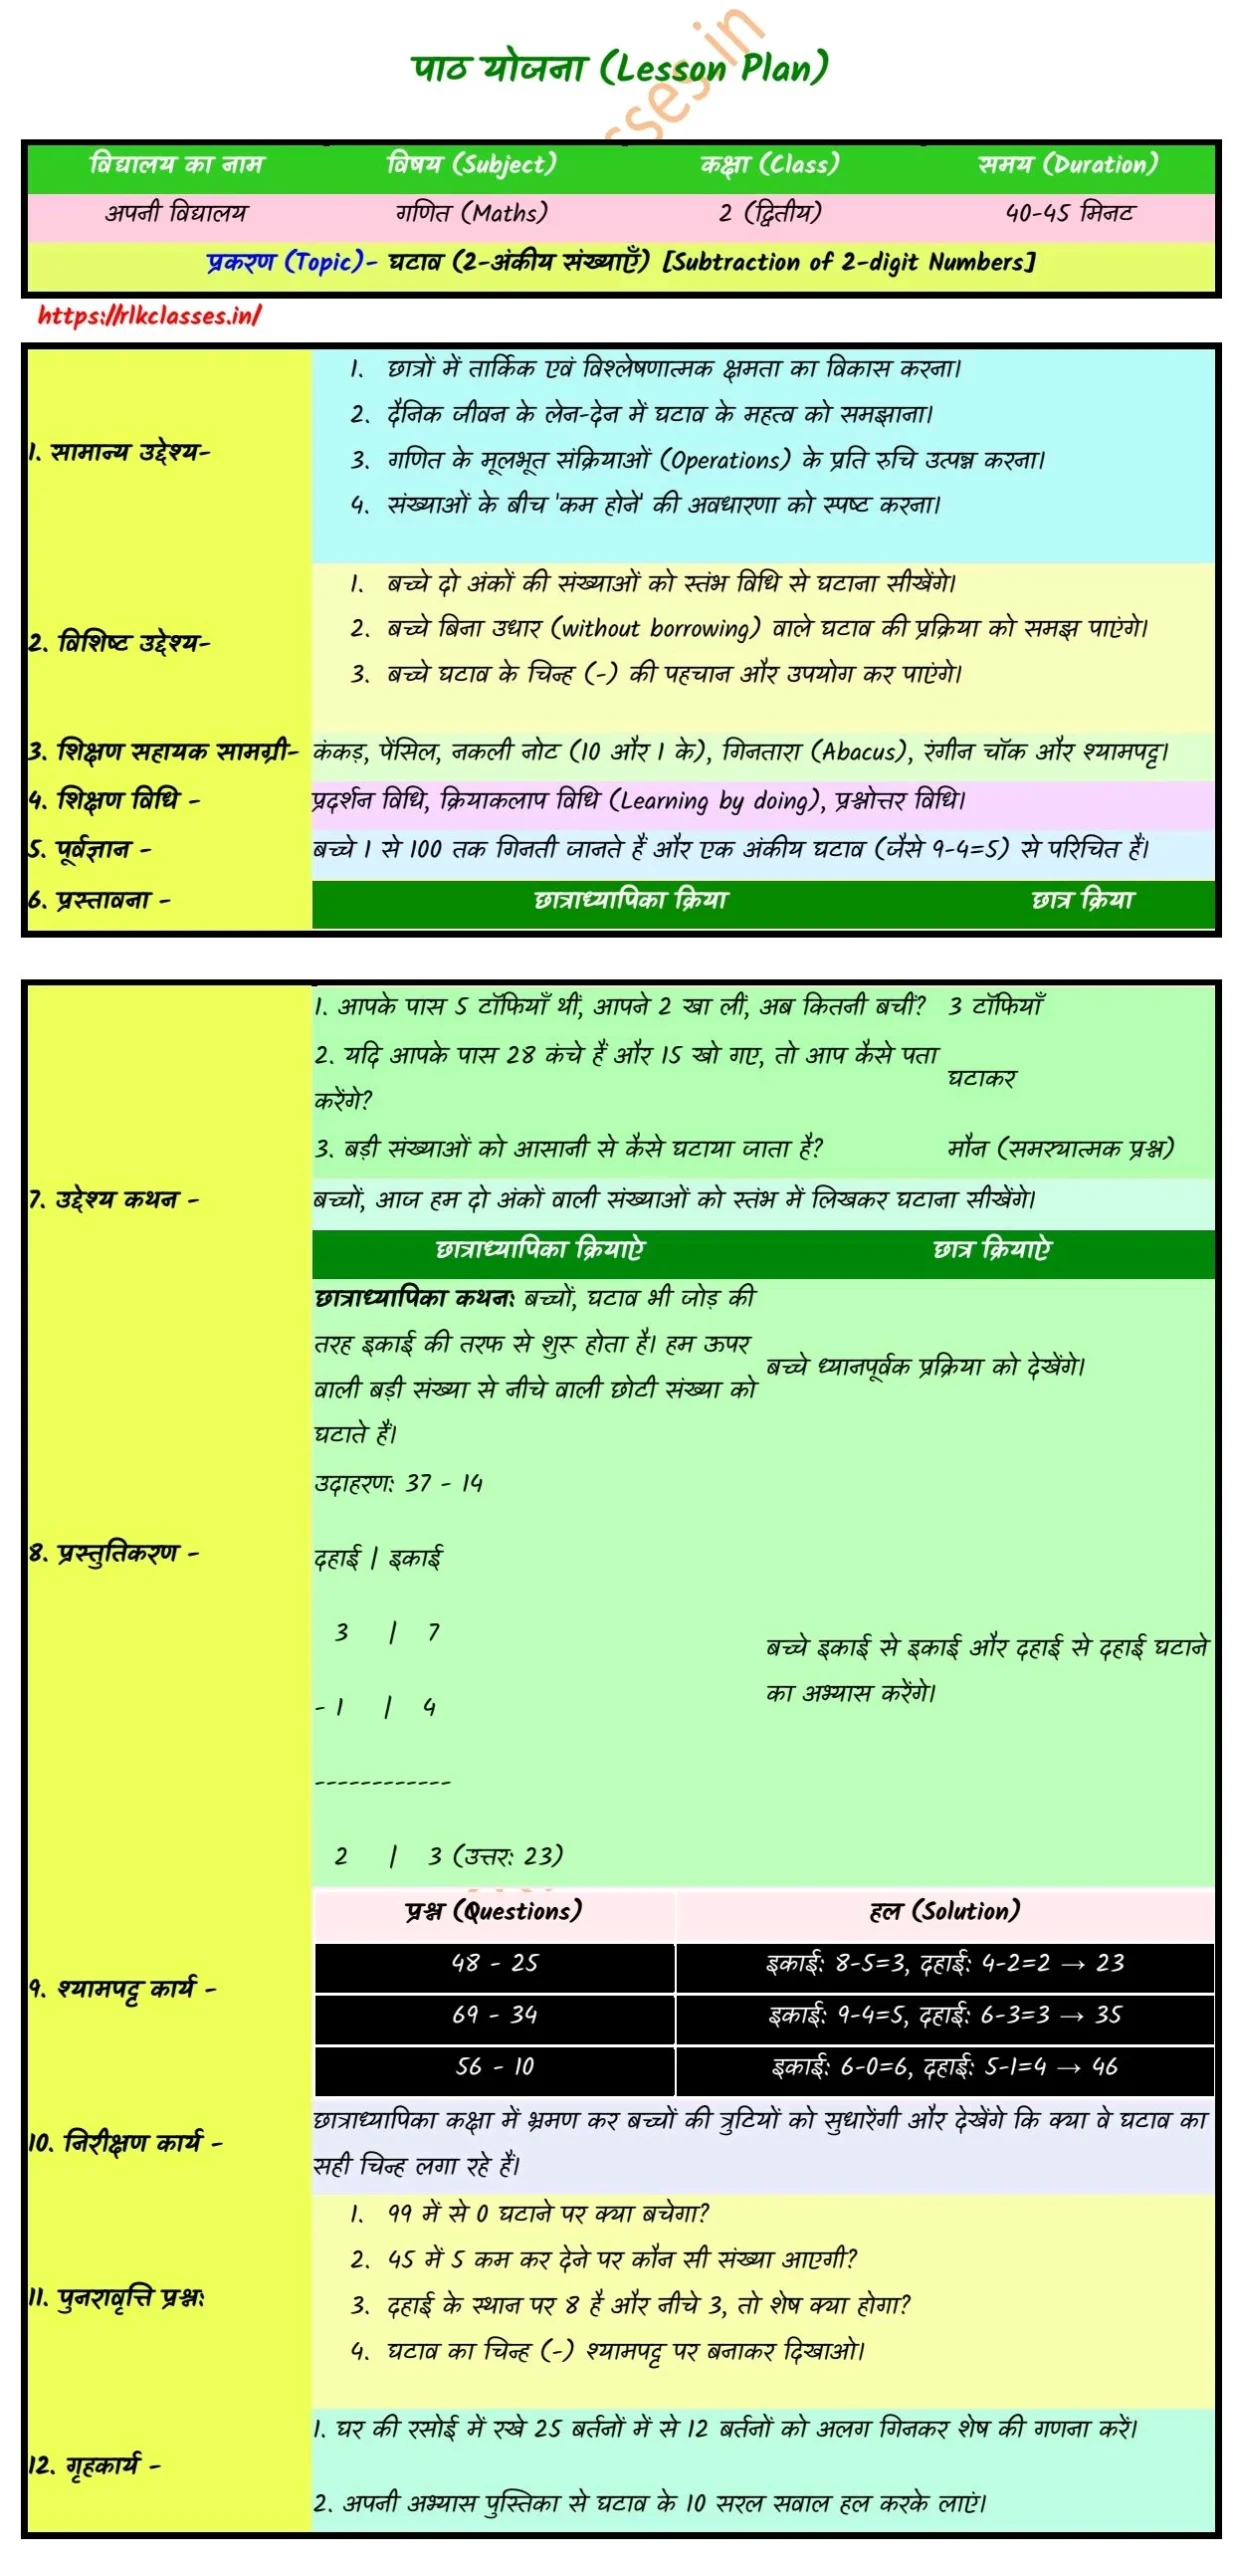 पाठ योजना (Lesson Plan)
sses.in
विद्यालय का नाम विषय (Subject) कक्षा (Class) समय (Duration)
अपनी विद्यालय गणित (Maths) 2 (द्वितीय) 40-45 मिनट
प्रकरण (Topic)- घटाव (2-अंकीय संख्याएँ) [Subtraction of 2-digit Numbers]
https://rlkclasses.in/
1. सामान्य उद्देश्य-
1. छात्रों में तार्किक एवं विश्लेषणात्मक क्षमता का विकास करना।
2. दैनिक जीवन के लेन-देन में घटाव के महत्व को समझाना।
3. गणित के मूलभूत संक्रियाओं (Operations) के प्रति रुचि उत्पन्न करना।
4. संख्याओं के बीच 'कम होने' की अवधारणा को स्पष्ट करना।
2. विशिष्ट उद्देश्य-
1. बच्चे दो अंकों की संख्याओं को स्तंभ विधि से घटाना सीखेंगे।
2. बच्चे बिना उधार (without borrowing) वाले घटाव की प्रक्रिया को समझ पाएंगे।
3. बच्चे घटाव के चिन्ह (-) की पहचान और उपयोग कर पाएंगे।
3. शिक्षण सहायक सामग्री- कंकड़, पेंसिल, नकली नोट (10 और 1 के), गिनतारा (Abacus), रंगीन चॉक और श्यामपट्ट।
4. शिक्षण विधि - प्रदर्शन विधि, क्रियाकलाप विधि (Learning by doing), प्रश्नोत्तर विधि।
5. पूर्वज्ञान - बच्चे 1 से 100 तक गिनती जानते हैं और एक अंकीय घटाव (जैसे 9-4=5) से परिचित हैं।
6. प्रस्तावना - छात्राध्यापिका क्रिया छात्र क्रिया
1. आपके पास 5 टॉफियाँ थीं, आपने 2 खा लीं, अब कितनी बचीं? 3 टॉफियाँ
2. यदि आपके पास 28 कंचे हैं और 15 खो गए, तो आप कैसे पता
करेंगे?
घटाकर
3. बड़ी संख्याओं को आसानी से कैसे घटाया जाता है? मौन (समस्यात्मक प्रश्न)
7. उद्देश्य कथन - बच्चों, आज हम दो अंकों वाली संख्याओं को स्तंभ में लिखकर घटाना सीखेंगे।
छात्राध्यापिका क्रियाऐ छात्र क्रियाऐ
8. प्रस्तुतिकरण -
छात्राध्यापिका कथन: बच्चों, घटाव भी जोड़ की
तरह इकाई की तरफ से शुरू होता है। हम ऊपर
वाली बड़ी संख्या से नीचे वाली छोटी संख्या को
घटाते हैं।
बच्चे ध्यानपूर्वक प्रक्रिया को देखेंगे।
उदाहरण: 37 - 14
दहाई | इकाई
3 | 7
- 1 | 4
------------
2 | 3 (उत्तर: 23)
बच्चे इकाई से इकाई और दहाई से दहाई घटाने
का अभ्यास करेंगे।
9. श्यामपट्ट कार्य -
प्रश्न (Questions) हल (Solution)
48 - 25 इकाई: 8-5=3, दहाई: 4-2=2 → 23
69 - 34 इकाई: 9-4=5, दहाई: 6-3=3 → 35
56 - 10 इकाई: 6-0=6, दहाई: 5-1=4 → 46
10. निरीक्षण कार्य -
छात्राध्यापिका कक्षा में भ्रमण कर बच्चों की त्रुटियों को सुधारेंगी और देखेंगे कि क्या वे घटाव का
सही चिन्ह लगा रहे हैं।
11. पुनरावृत्ति प्रश्न:
1. 99 में से 0 घटाने पर क्या बचेगा?
2. 45 में 5 कम कर देने पर कौन सी संख्या आएगी?
3. दहाई के स्थान पर 8 है और नीचे 3, तो शेष क्या होगा?
4. घटाव का चिन्ह (-) श्यामपट्ट पर बनाकर दिखाओ।
12. गृहकार्य -
1. घर की रसोई में रखे 25 बर्तनों में से 12 बर्तनों को अलग गिनकर शेष की गणना करें।
2. अपनी अभ्यास पुस्तिका से घटाव के 10 सरल सवाल हल करके लाएं।